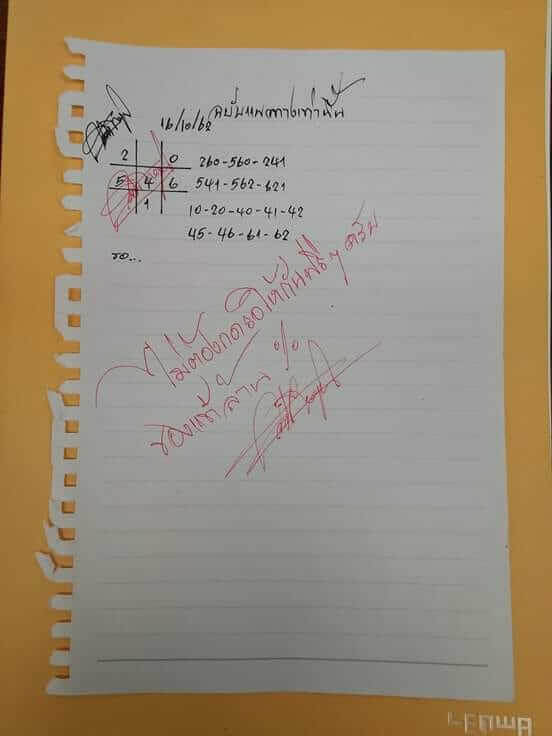 ฉบับแนวทางเท่านั้น
16/10/62
2 0 260-560-241
5 4 6 541-562-621
1 10-20-40-41-42
45-46-61-62
รอ...
ไม่ต้องกดรอให้กันฟรีๆ ครับ
ของแท้ล้าน %